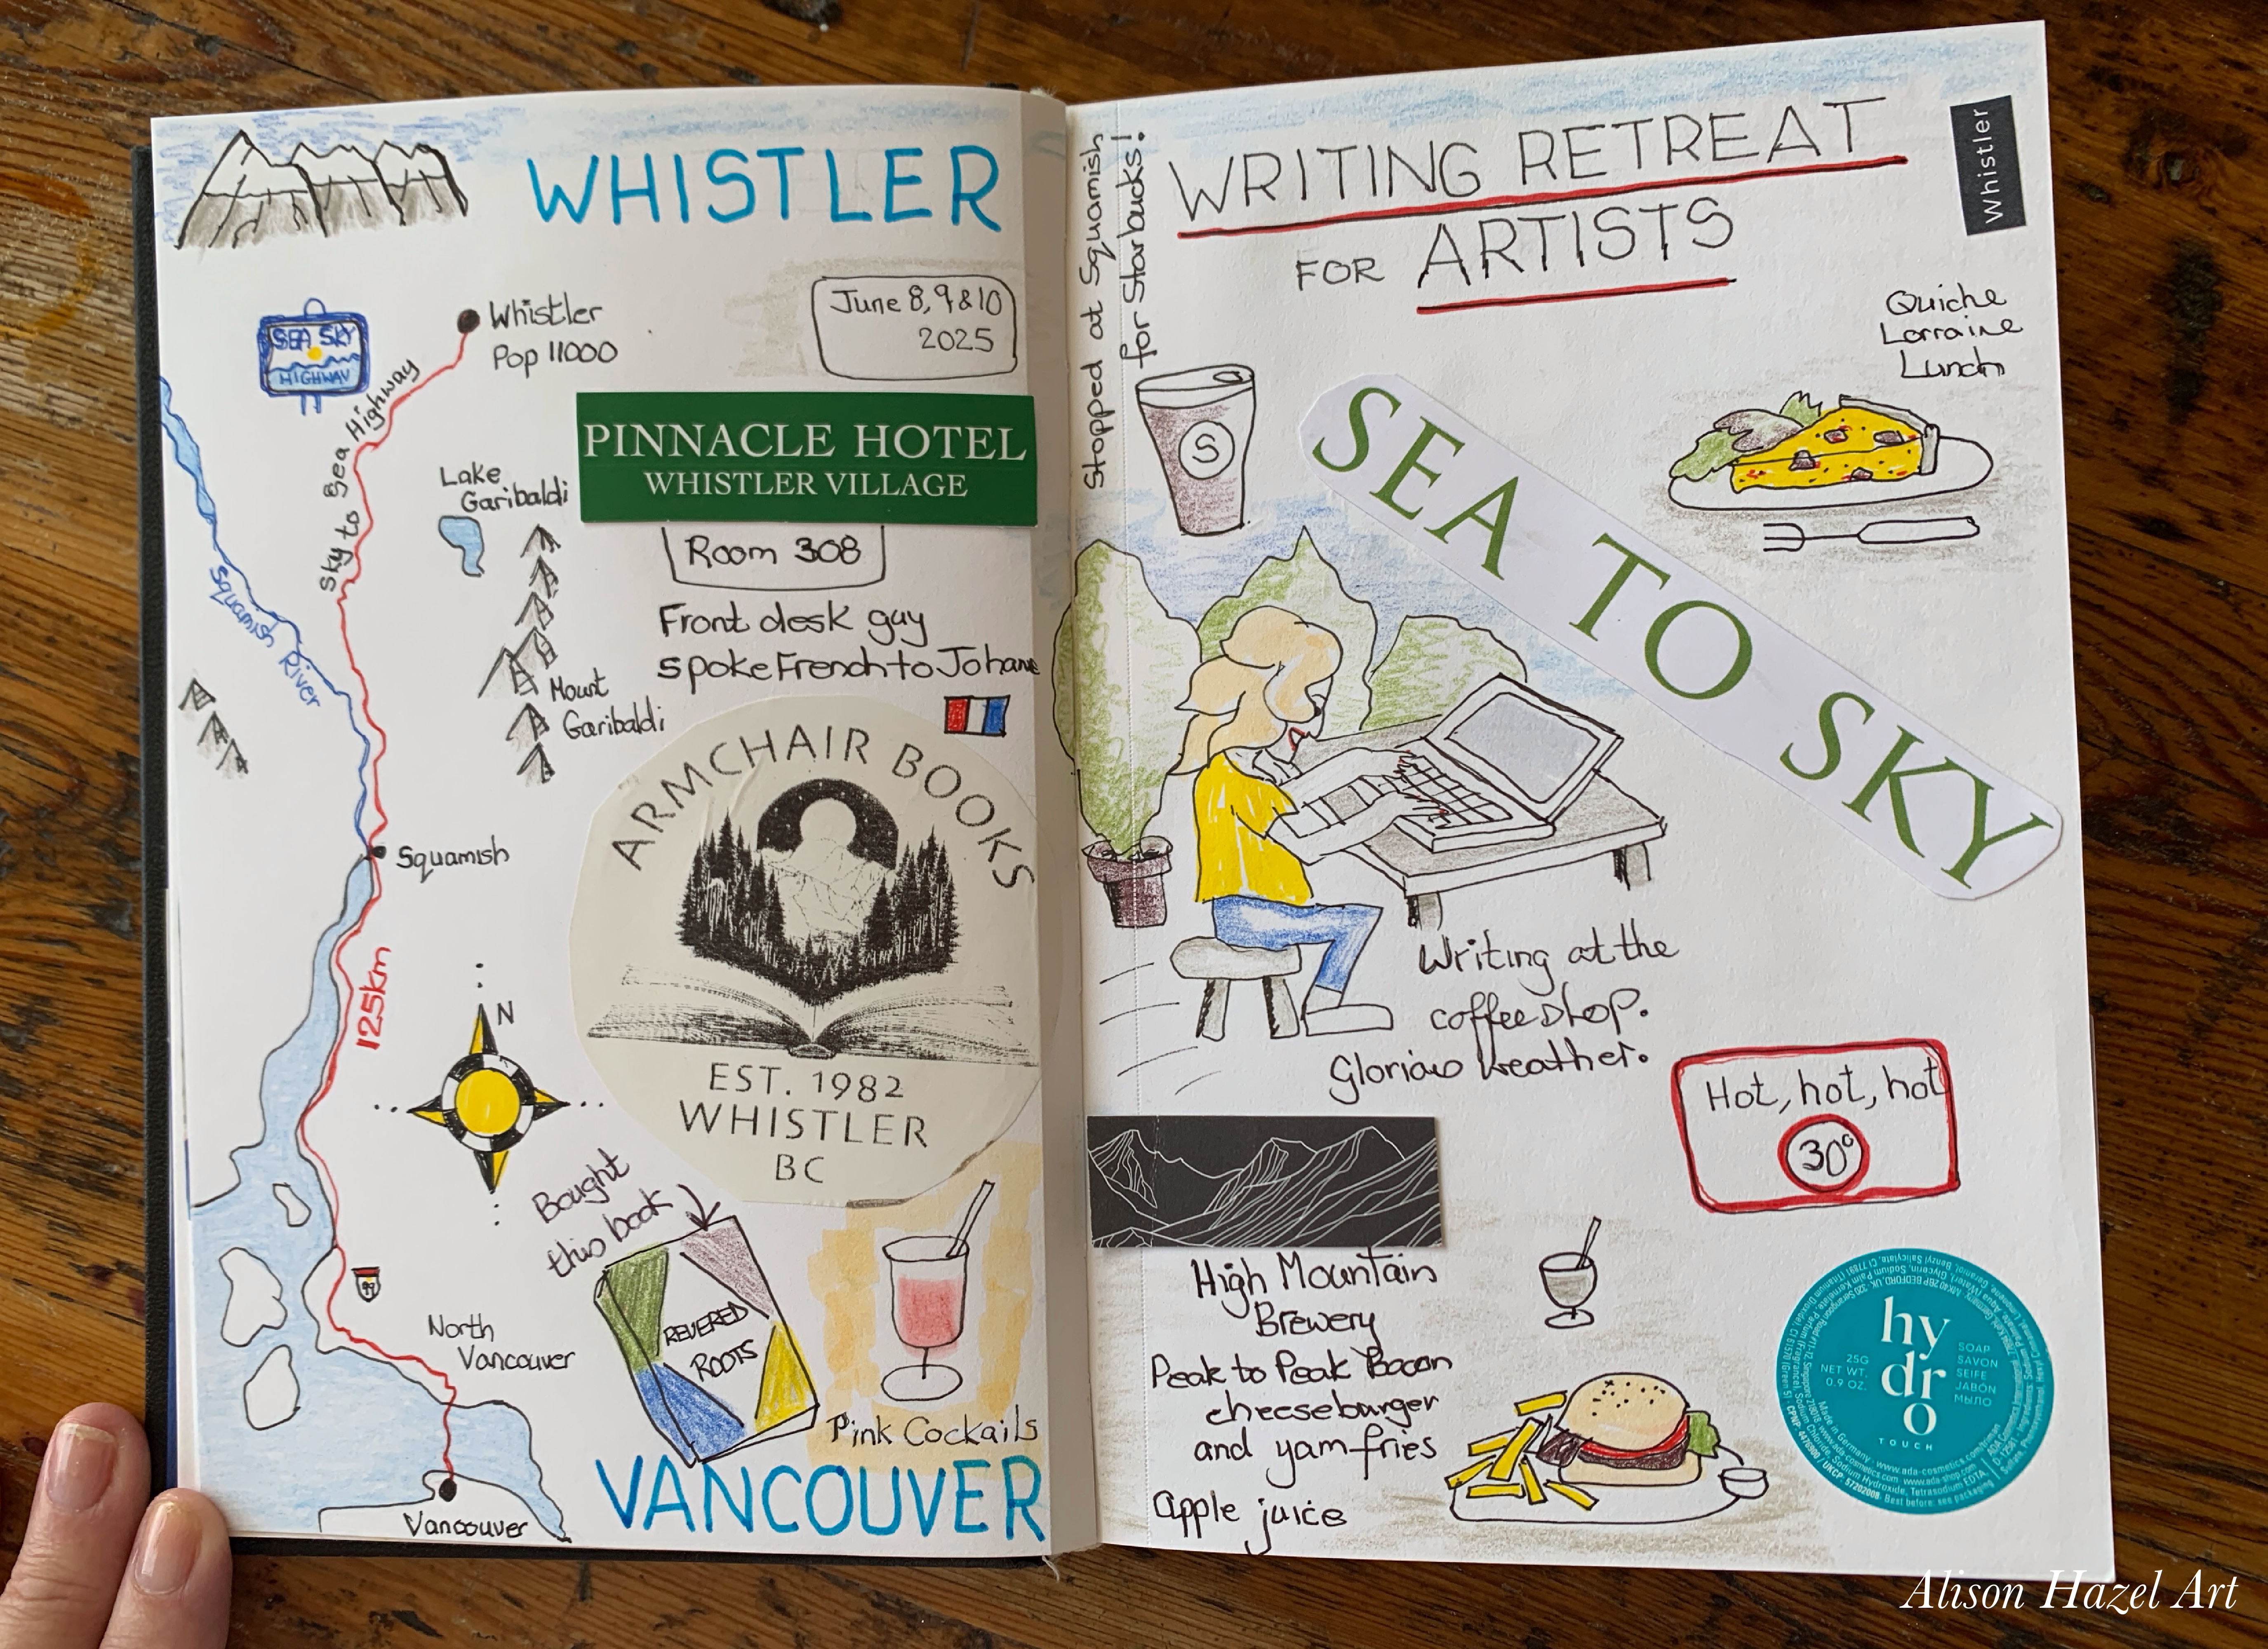 WHISTLER
June 8, 9 & 10
2025
SEA SKY
HIGHWAY
Whistler
Pop 11000
Sky to Sea Highway
PINNACLE HOTEL
WHISTLER VILLAGE
Room 308
Front desk guy
spoke French to Johanne
Lake
Garibaldi
Squamish River
Mount
Garibaldi
Squamish
125km
N
ARMCHAIR BOOKS
EST. 1982
WHISTLER
BC
Bought
this book
REVERED
ROOTS
99
North
Vancouver
Vancouver
Pink Cockails
VANCOUVER
Stopped at Squamish
for Starbucks!
WRITING RETREAT
FOR ARTISTS
Whistler
S
Quiche
Lorraine
Lunch
SEA TO SKY
Writing at the
coffee shop.
Glorious weather.
Hot, hot, hot
30°
High Mountain
Brewery
Peak to Peak Bacon
cheeseburger
and yam fries
apple juice
hy
dr
o
TOUCH
25G
NET WT.
0.9 OZ.
SOAP
SAVON
SEIFE
JABÓN
МЫЛО
Made in Germany. www.ada-cosmetics.com
Alison Hazel Art